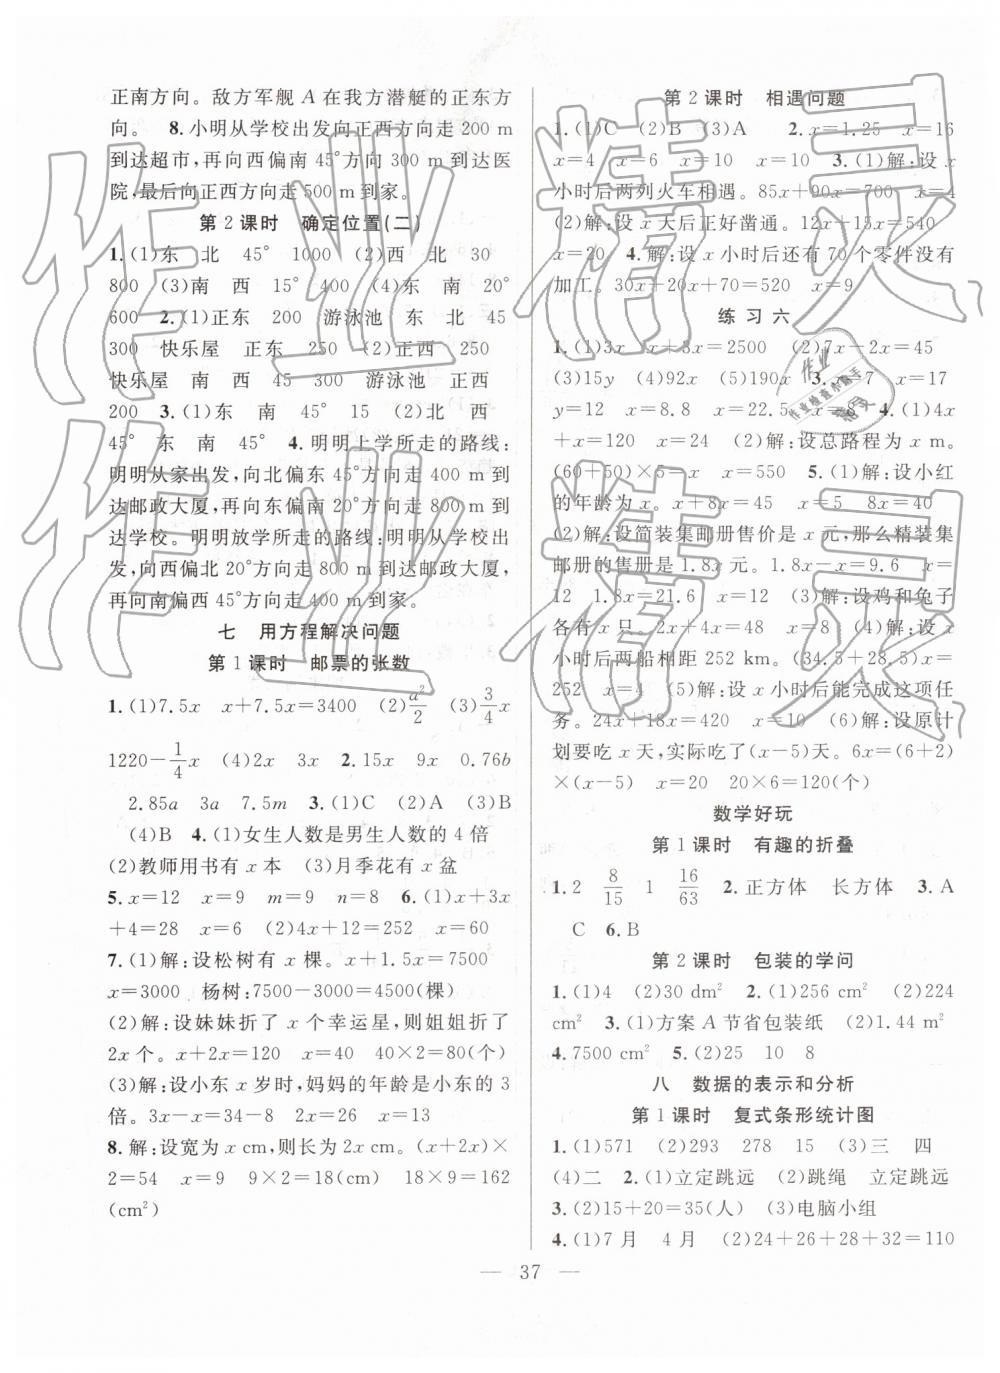 正南方向。敌方军舰 A 在我方潜艇的正东方
向。 8.小明从学校出发向正西方向走 200 m
到达超市，再向西偏南 45°方向 300 m 到达医
院，最后向正西方向走 500 m 到家。
第 2 课时 确定位置(二)
1.(1)东 北 45° 1000 (2)西 北 30
800 (3)南 西 15° 400 (4)东 南 20°
600 2.(1)正东 200 游泳池 东 北 45
300 快乐屋 正东 250 (2)正西 250
快乐屋 南 西 45 300 游泳池 正西
200 3.(1)东 南 45° 15 (2)北 西
45° 东 南 45° 4.明明上学所走的路线:
明明从家出发，向北偏东 45°方向走 400 m 到
达邮政大厦，再向东偏南 20°方向走 800 m 到
达学校。明明放学所走的路线:明明从学校出
发，向西偏北 20°方向走 800 m 到达邮政大厦，
再向南偏西 45°方向走 400 m 到达家。
七 用方程解决问题
第 1 课时 邮票的张数
1.(1)7.5x x+7.5x=3400 (2)a²/2 (3)3/4x
1220−1/4x (4)2x 3x 2.15x 9x 0.76b
2.85a 3a 7.5m 3.(1)C (2)A (3)B
(4)B 4.(1)女生人数是男生人数的 4 倍
(2)教师用书有 x 本 (3)月季花有 x 盆
5.x=12 x=9 m=9 n=8 6.(1)x+3x
+4=28 x=6 (2)4x+12=252 x=60
7.(1)解:设松树有 x 棵。x+1.5x=7500
x=3000 杨树:7500−3000=4500(棵)
(2)解:设妹妹折了 x 个幸运星，则姐姐折了
2x 个。x+2x=120 x=40 40×2=80(个)
(3)解:设小东 x 岁时，妈妈的年龄是小东的 3
倍。3x−x=34−8 2x=26 x=13
8.解:设宽为 x cm,则长为 2x cm。(x+2x)×
2=54 x=9 9×2=18(cm) 18×9=162
(cm²)
第 2 课时 相遇问题
1.(1)C (2)B (3)A 2.x=1.25 x=16
x=4 x=6 x=10 x=10 3.(1)解:设 x
小时后两列火车相遇。85x+90x=700 x=4
(2)解:设 x 天后正好凿通。12x+15x=540
x=20 4.解:设 x 小时后还有 70 个零件没有
加工。30x+20x+70=520 x=9
练 习 六
1.(1)3x x+3x=2500 (2)7x−2x=45
(3)15y (4)9x (5)190x 3. 7 x=17
y=12 x=8.8 x=22.5 x=6 4.(1)4x
+x=120 x=24 (2)解:设总路程为 x m。
(60+50)×5=x x=550 5.(1)解:设小红
的年龄为 x。x+8x=45 x=5 8x=40
(2)解:设简装集邮册售价是 x 元,那么精装集
邮册的售册是 1.8x 元。1.8x−x=9.6 x=
12 1.8x=21.6 x=12 (3)解:设鸡和兔子
各有 x 只。 (4)解:设 x
小时后两船相距 252 km。(34.5+28.5)x=
252 x=4 (5)解:设 x 小时后能完成这项任
务。24x+18x=420 x=10 (6)解:设原计
划要吃 x 天,实际吃了(x−5)天。6x=(6+2)
×(x−5) x=20 20×6=120(个)
数学好玩
第 1 课时 有趣的折叠
1.2 8/15 1 16/63 2.正方体 长方体 3.A
C 6.B
第 2 课时 包装的学问
1.(1)4 (2)30 dm² 2.(1)256 cm² (2)224
cm² 3.(1)方案 A 节省包装纸 (2)1.44 m²
4.7500 cm² 5.(2)25 10 8
八 数据的表示和分析
第 1 课时 复式条形统计图
1.(1)571 (2)293 278 15 (3)三 四
(4)二 2.(1)立定跳远 (2)跳绳 立定跳远
3.(2)15+20=35(人) (3)电脑小组
4.(1)7 月 4 月 (2)24+26+28+32=110
— 37 —
作业精灵
作业精灵